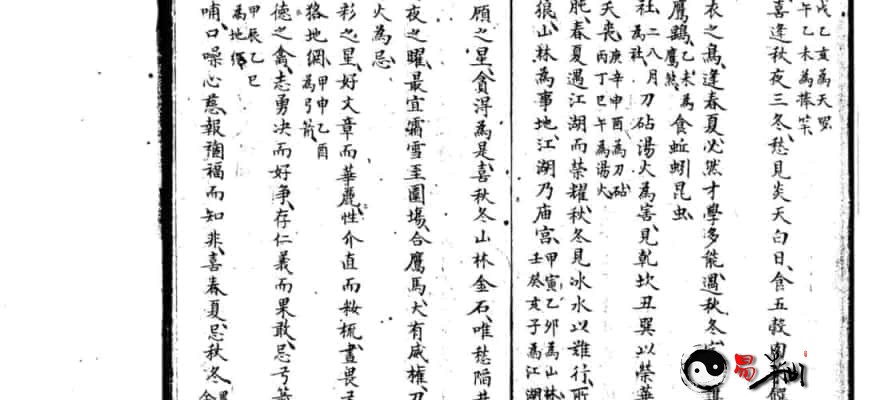 戊乙亥為天
午乙未為
喜逢秋夜三冬、愁見炎天白日、食五穀
衣之鳥、逢春夏必然才學多能、遇秋冬
鷹鷂、乙未為食蚯蚓昆虫
鷹
社、二八月刀砧湯火為害、見乾坎丑巽以榮
為社
庚辛申酉為刀砧
天喪、丙丁巳午為湯火
春夏遇江湖而榮耀、秋冬見冰水以難行、所
狼、山林為事地、江湖乃庙宫、甲寅乙卯為山林
壬癸亥子為江湖
願之星、貪淂為是、喜秋冬山林金石、唯愁陷井
夜之曜、最宜霜雪至圍場、合鷹馬、犬有威權、刀
火為忌
彩之星、好文章而華麗、性介直而妝梳、畫畏
狢地網、甲申乙酉
為弓箭
德之禽、志勇决而好争、存仁義而果敢、忌弓箭
甲辰乙巳
為地網
哺口噪心慈、報禍福而知非、喜春夏、忌秋冬
易